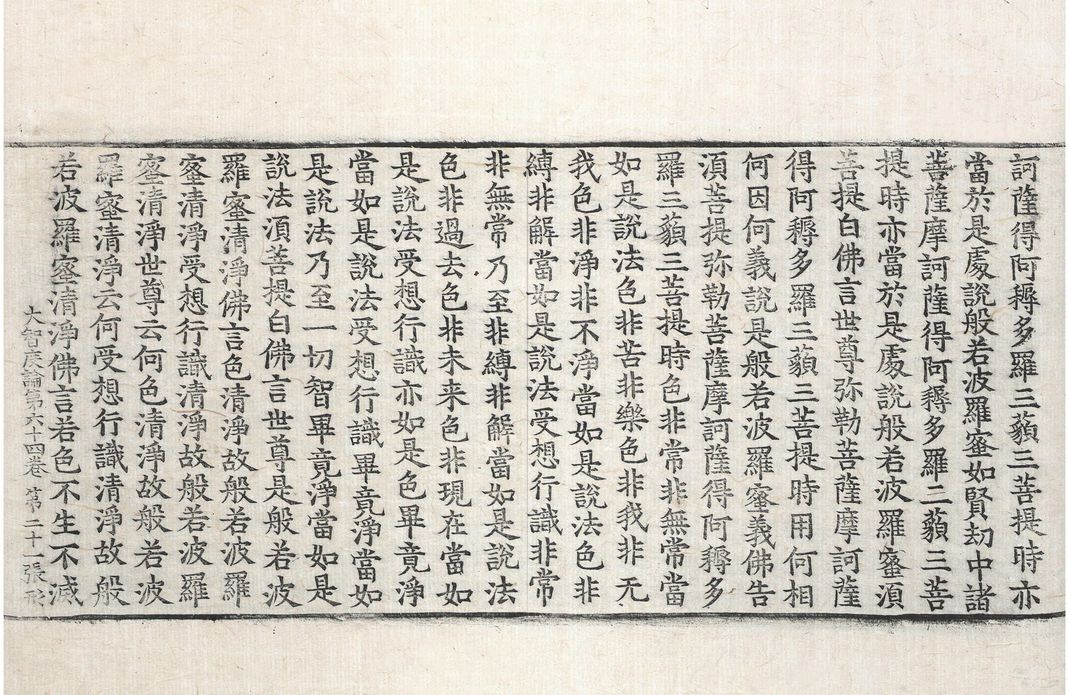 訶薩得阿耨多羅三藐三菩提時亦
當於是處說般若波羅蜜如賢劫中諸
菩薩摩訶薩得阿耨多羅二藐三菩
提時亦當於是處說般若波羅蜜湏
菩提白佛言世尊弥勒菩薩摩訶薩
得阿耨多羅三藐三菩提時用何相
何因何義說是般若波羅蜜義佛告
湏菩提弥勒菩薩摩訶薩得阿耨多
羅三藐三菩提時色非常非無常當
如是說法色非苦非樂色非我非无
我色非淨非不淨當如是說法色非
縛非解當如是說法受想行識非常
非無常乃至非縛非解當如是說法
色非過去色非未来色非現在當如
是說法受想行識亦如是色畢竟淨
當如是說法受想行識畢竟淨當如
是說法乃至一切智畢竟淨當如是
說法湏菩提白佛言世尊是般若波
羅蜜清淨佛言色清淨故般若波羅
蜜清淨受想行識清淨故般若波羅
蜜清淨世尊云何色清淨故般若波
羅蜜清淨云何受想行識清淨故般
若波羅蜜清淨佛言若色不生不滅
大智度論第六十四卷 第二十一張